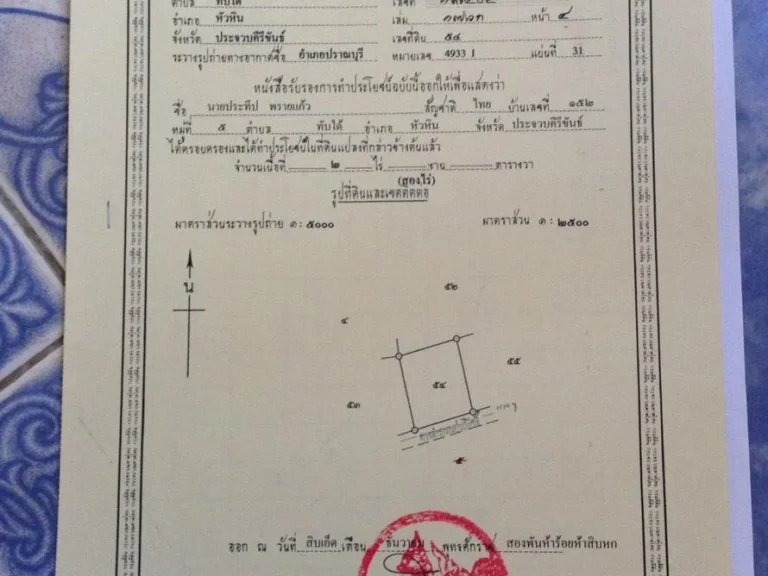 ตำบล ทับใต้ เลขที่
อำเภอ หัวหิน เล่ม ๑๗๖๓ หน้า ๔
จังหวัด ประจวบคีรีขันธ์ เลขที่ดิน ๕๔
ระวางรูปถ่ายทางอากาศชื่อ อำเภอปราณบุรี หมายเลข 4933 I แผ่นที่ 31
หนังสือรับรองการทำประโยชน์ฉบับนี้ออกให้เพื่อแสดงว่า
ชื่อ นายประทีป พรายแก้ว สัญชาติ ไทย บ้านเลขที่ ๑๕๒
หมู่ที่ ๕ ตำบล ทับใต้ อำเภอ หัวหิน จังหวัด ประจวบคีรีขันธ์
ได้ครอบครองและได้ทำประโยชน์ในที่ดินแปลงที่กล่าวข้างต้นแล้ว
จำนวนเนื้อที่ ๒ ไร่ งาน ตารางวา
(สองไร่)
รูปที่ดินและเขตติดต่อ
มาตราส่วนระวางรูปถ่าย ๑ : ๕๐๐๐ มาตราส่วน ๑ : ๒๕๐๐
น
๕๒
๔
๕๕
๕๔
๕๓
ออก ณ วันที่ สิบเอ็ด เดือน ธันวาคม พุทธศักราช สองพันห้าร้อยห้าสิบหก